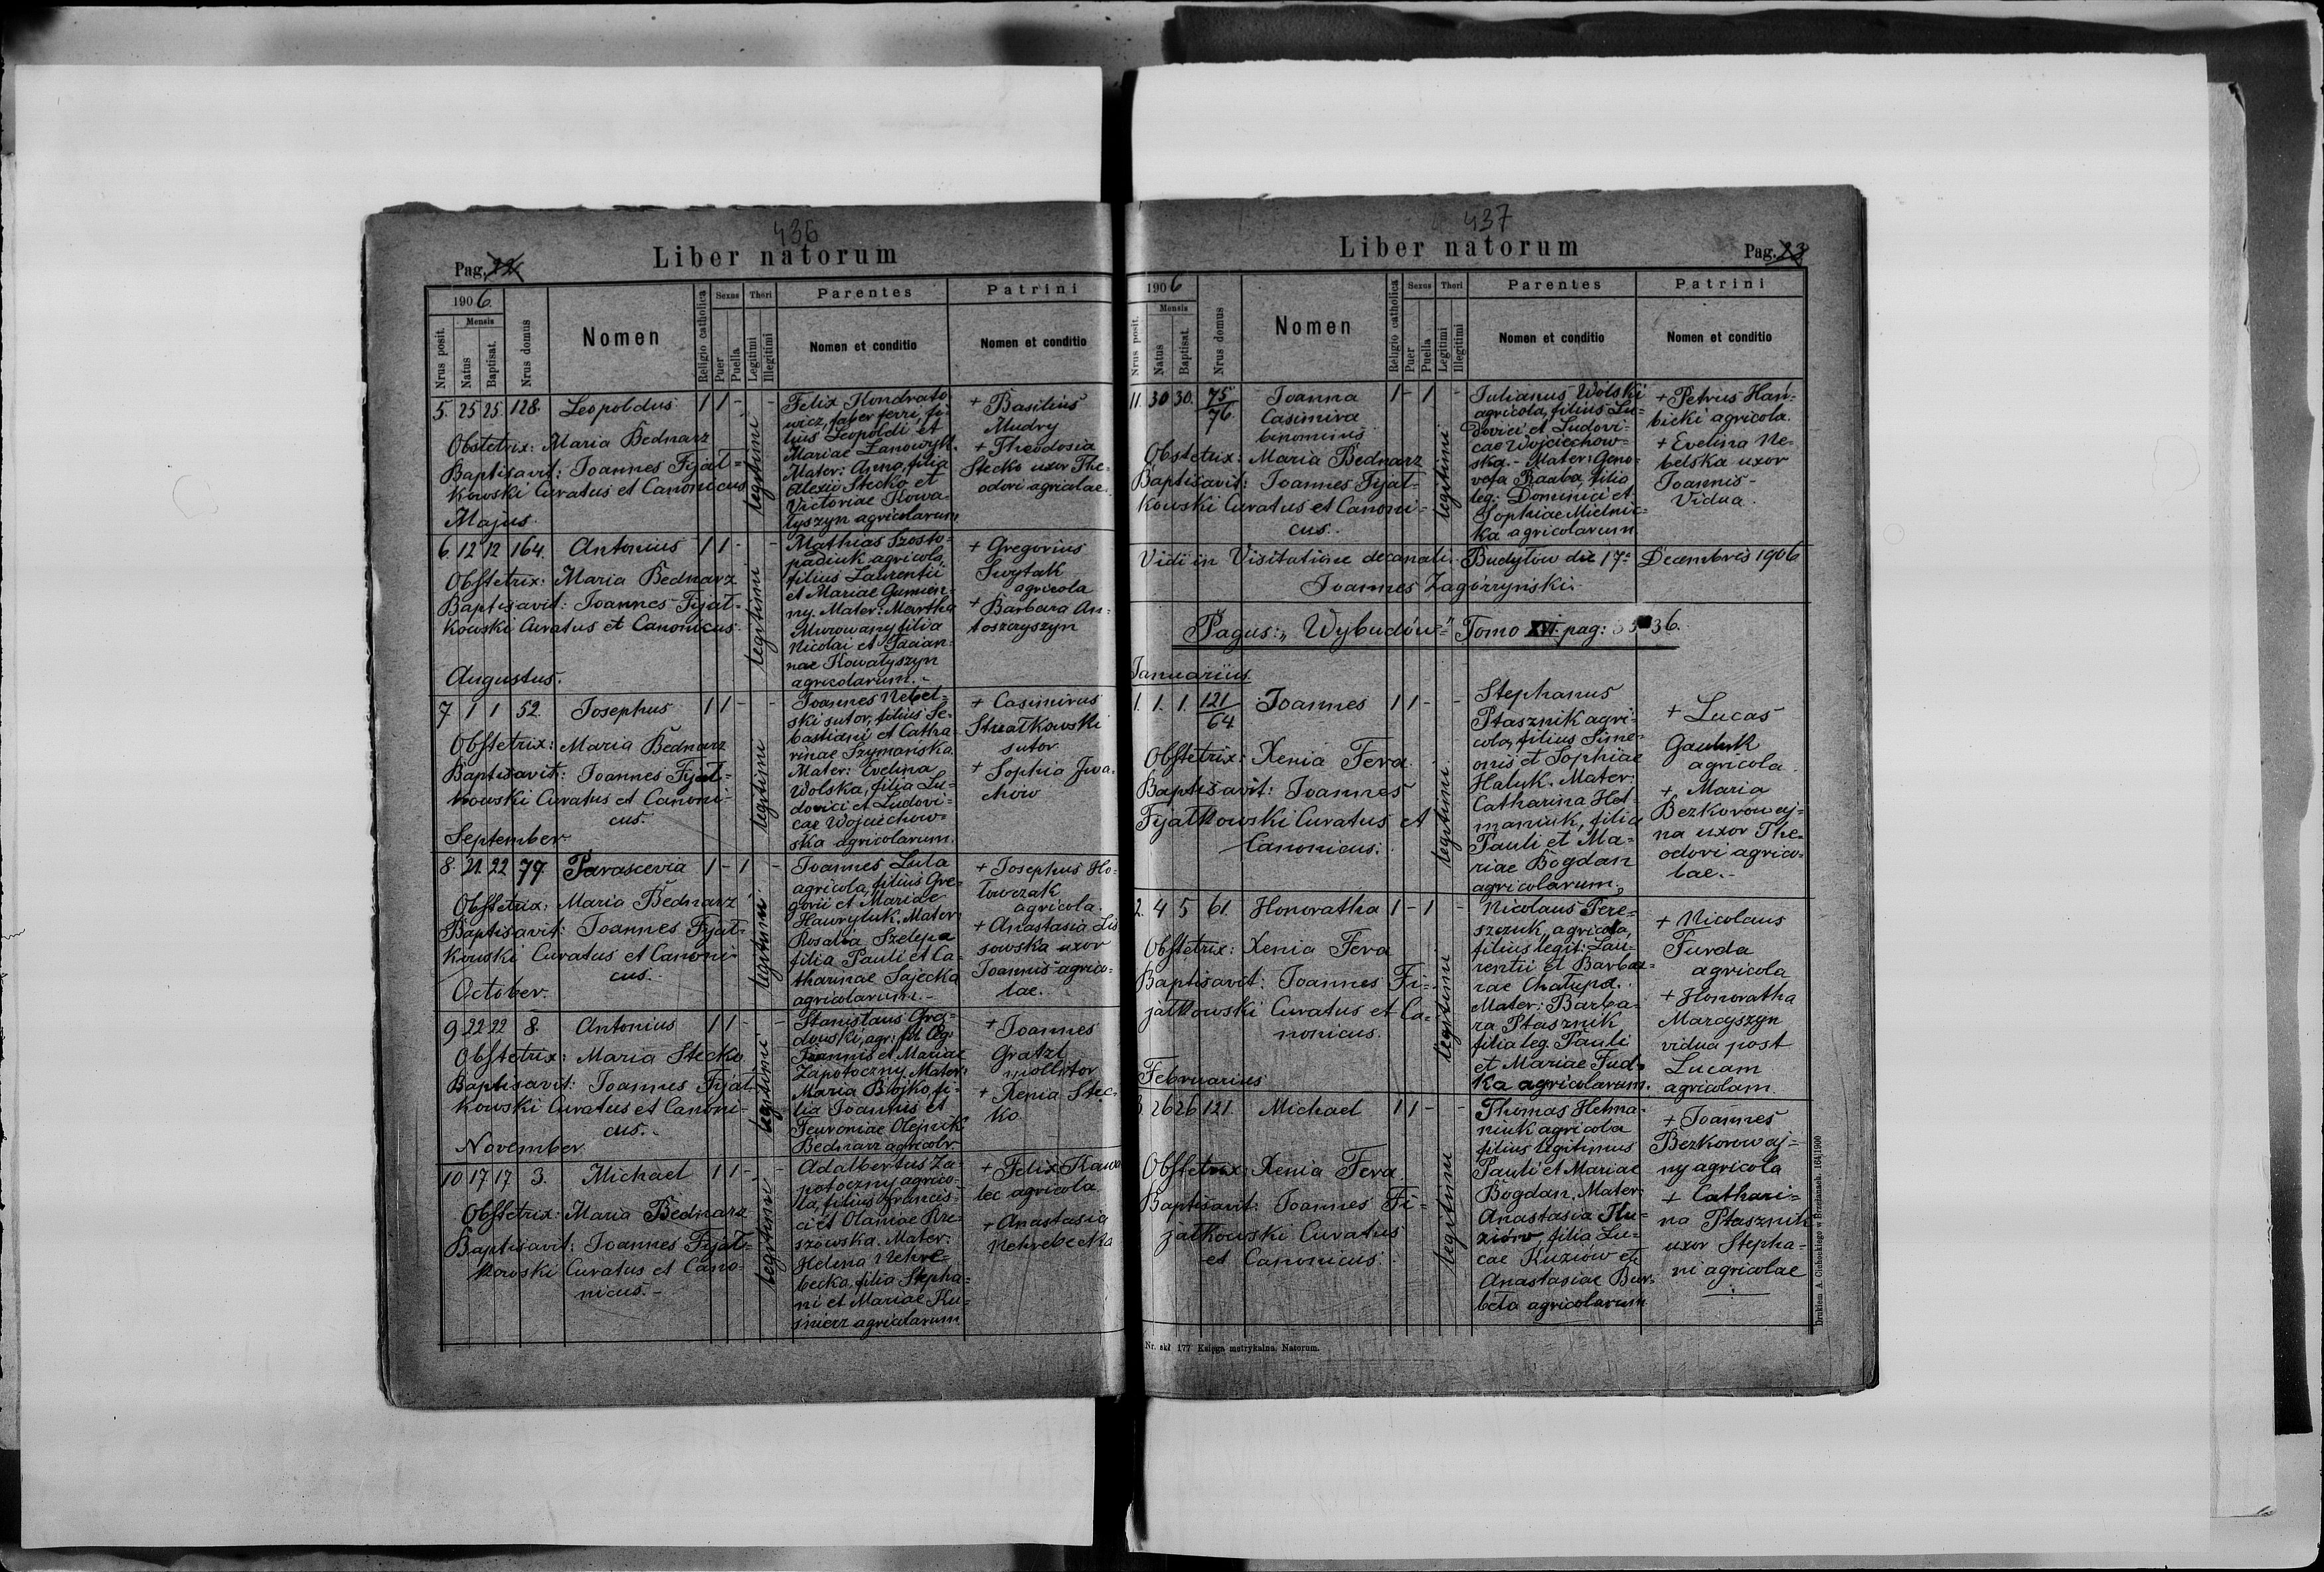 436
Liber natorum
Pag. 22
1906.
Mensis
Nrus posit.
Natus
Baptisat.
Nrus domus
Nomen
Religio catholica
Sexus
Puer
Puella
Thori
Legitimi
Illegitimi
Parentes
Nomen et conditio
Patrini
Nomen et conditio
5. 25 25. 128. Leopoldus 1 1 - -
Obstetrix: Maria Bednarz
Baptisavit: Joannes Fijał=
kowski Curatus et Canonicus
legitimi
Felix Kondrato
wicz, faber ferri, fi=
lius Leopoldi et
Mariae Zanowyk.
Mater: Anna, filia
Alexii Stecko et
Victoriae Kowa=
łyszyn agricolarum
+ Basilius
Mudry
+ Theodosia
Stecko uxor The=
odori agricolae.
Majus.
6. 12 12 164. Antonius 1 1 - -
Obstetrix: Maria Bednarz
Baptisavit: Joannes Fijał=
kowski Curatus et Canonicus.
legitimi
Mathias Szosto=
padiuk agricola,
filius Laurentii
et Mariae Gumien=
ny. Mater: Martha
Murowany filia
Nicolai et Tacian=
nae Kowałyszyn
agricolarum.-
+ Gregorius
Swytak
agricola
+ Barbara An=
toszczyszyn
Augustus.
7 1 1 52. Josephus 1 1 - -
Obstetrix: Maria Bednarz
Baptisavit: Joannes Fijał=
kowski Curatus et Canoni=
cus.
legitimi
Joannes Nebel=
ski sutor, filius Se=
bastiani et Catha=
rinae Szymańska.
Mater: Evelina
Wolska, filia Lu=
dovici et Ludovi=
cae Wojciechow=
ska agricolarum.
+ Casimirus
Struałkowski
sutor
+ Sophia Jwa=
chów
September
8. 21. 22 77. Parascevia 1 - 1 -
Obstetrix: Maria Bednarz
Baptisavit: Joannes Fijał=
kowski Curatus et Canoni=
cus.-
legitimi
Joannes Lula
agricola, filius Gre=
gorii et Mariae
Hawryluk. Mater:
Rosalia Szelepa
filia Pauli et Ca=
tharinae Sajecka
agricolarum.-
+ Josephus Ho=
łowczak
agricola.
+ Anastasia Lis
sowska uxor
Joannis agrico=
lae.
October.
9 22 22 8. Antonius 1 1 - -
Obstetrix: Maria Stecko
Baptisavit: Joannes Fijał=
kowski Curatus et Canoni=
cus.-
legitimi
Stanislaus Gra=
dowski, agr: fil. leg:
Joannis et Mariae
Zapotoczny. Mater:
Maria Bojko, fi=
lia Joannis et
Feuroniae Olejnik
Bednarz agricolr.
+ Joannes
Gratzl
molitor
+ Xenia Stec=
ko.
November
10. 17. 17 3. Michael 1 1 - -
Obstetrix: Maria Bednarz
Baptisavit: Joannes Fijał=
kowski Curatus et Cano=
nicus.-
legitimi
Adalbertus Za=
potoczny agrico=
la, filius Francis=
ci et Olaniae Rze=
szowska. Mater:
Helena Nehre=
becka, filia Stepha=
ni et Mariae Ku=
śnierz agricolarum
+ Felix Kawa
lec agricola
+ Anastasia
Nehrebecka
437
Liber natorum
Pag. 23
1906
Mensis
Nrus posit.
Natus
Baptisat.
Nrus domus
Nomen
Religio catholica
Sexus
Puer
Puella
Thori
Legitimi
Illegitimi
Parentes
Nomen et conditio
Patrini
Nomen et conditio
11. 30 30. 75/76. Joanna 1 - 1 -
Casimira
binominis
Obstetrix: Maria Bednarz
Baptisavit: Joannes Fijał=
kowski Curatus et Canoni=
cus.
legitimi
Julianus Wolski
agricola, filius Lu=
dovici et Ludovi=
cae Wojciechow=
ska.- Mater: Geno=
vefa Raaba, filia
leg: Dominici et
Sophiae Mielnic=
ka agricolarum
+ Petrus Hań=
bicki agricola.
+ Evelina Ne=
belska uxor
Joannis-
Vidua.
Vidi in Visitatione decanali. Budyłów die 17= Decembris 1906
Joannes Zagórzyński.
Pagus: „Wybudów" Tomo XVI. pag: 36.
Januarius
1. 1. 1. 121/64 Joannes 1 1 - -
Obstetrix: Xenia Fera.
Baptisavit: Joannes
Fijałkowski Curatus et
Canonicus.
legitimi
Stephanus
Ptasznik agri=
cola, filius Sime=
onis et Sophiae
Haluk. Mater:
Catharina Het=
maniuk, filia
Pauli et Ma=
riae Bogdan
agricolarum.
+ Lucas
Gauluk
agricola
+ Maria
Bezkorowaj=
na uxor The=
odori agrico=
lae.-
2. 4 5 61. Honoratha 1 - 1 -
Obstetrix: Xenia Fera
Baptisavit: Joannes Fi=
jałkowski Curatus et Ca=
nonicus.
legitimi
Nicolaus Tere=
szczuk, agricola,
filius legit: Lau=
rentii et Barba=
rae Chałupa.
Mater: Barba=
ra Ptasznik
filia leg. Pauli
et Mariae Fud=
ka agricolarum.
+ Nicolaus
Furda
agricola
+ Honoratha
Marcyszyn
vidua post
Lucam
agricolam.
Februarius
3. 26 26 121. Michael 1 1 - -
Obstetrix: Xenia Fera
Baptisavit: Joannes Fi=
jałkowski Curatus
et Canonicus.
legitimi
Thomas Hetma=
niuk agricola
filius legitimus
Pauli et Mariae
Bogdan. Mater:
Anastasia Ku=
ziów, filia Lu=
cae Kuziów et
Anastasiae Bur=
beta agricolarum
+ Joannes
Bezkorowaj=
ny agricola
+ Cathari=
na Ptasznik
uxor Stepha=
ni agricolae
Nr. skł 177 Księga metrykalna Natorum.
Drukiem A. Cichockiego w Brzeżanach. 164/1900